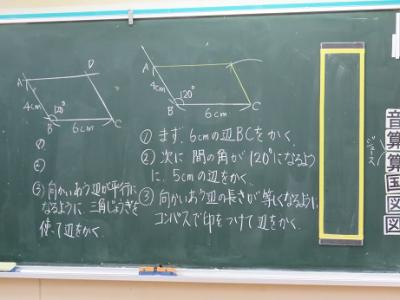 A
D
4cm
120°
B
6cm
C
①
②
③ 向かいあう辺が平行に
なるように 三角じょうぎを
使って辺をかく。
A
4cm
120°
B
6cm
C
① まず、6cmの辺BCをかく。
② 次に 間の角が120°になるよう
に、5cmの辺をかく。
③ 向かいあう辺の長さが等しくなるように
コンパスで印をつけて辺をかく。
音
算
算
国
図
図